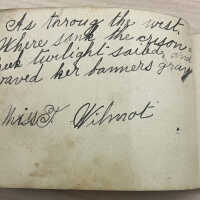 As throug the west,
Where sank the crson
twilight sailed, and
waved her banners gray
Miss St Wilmot